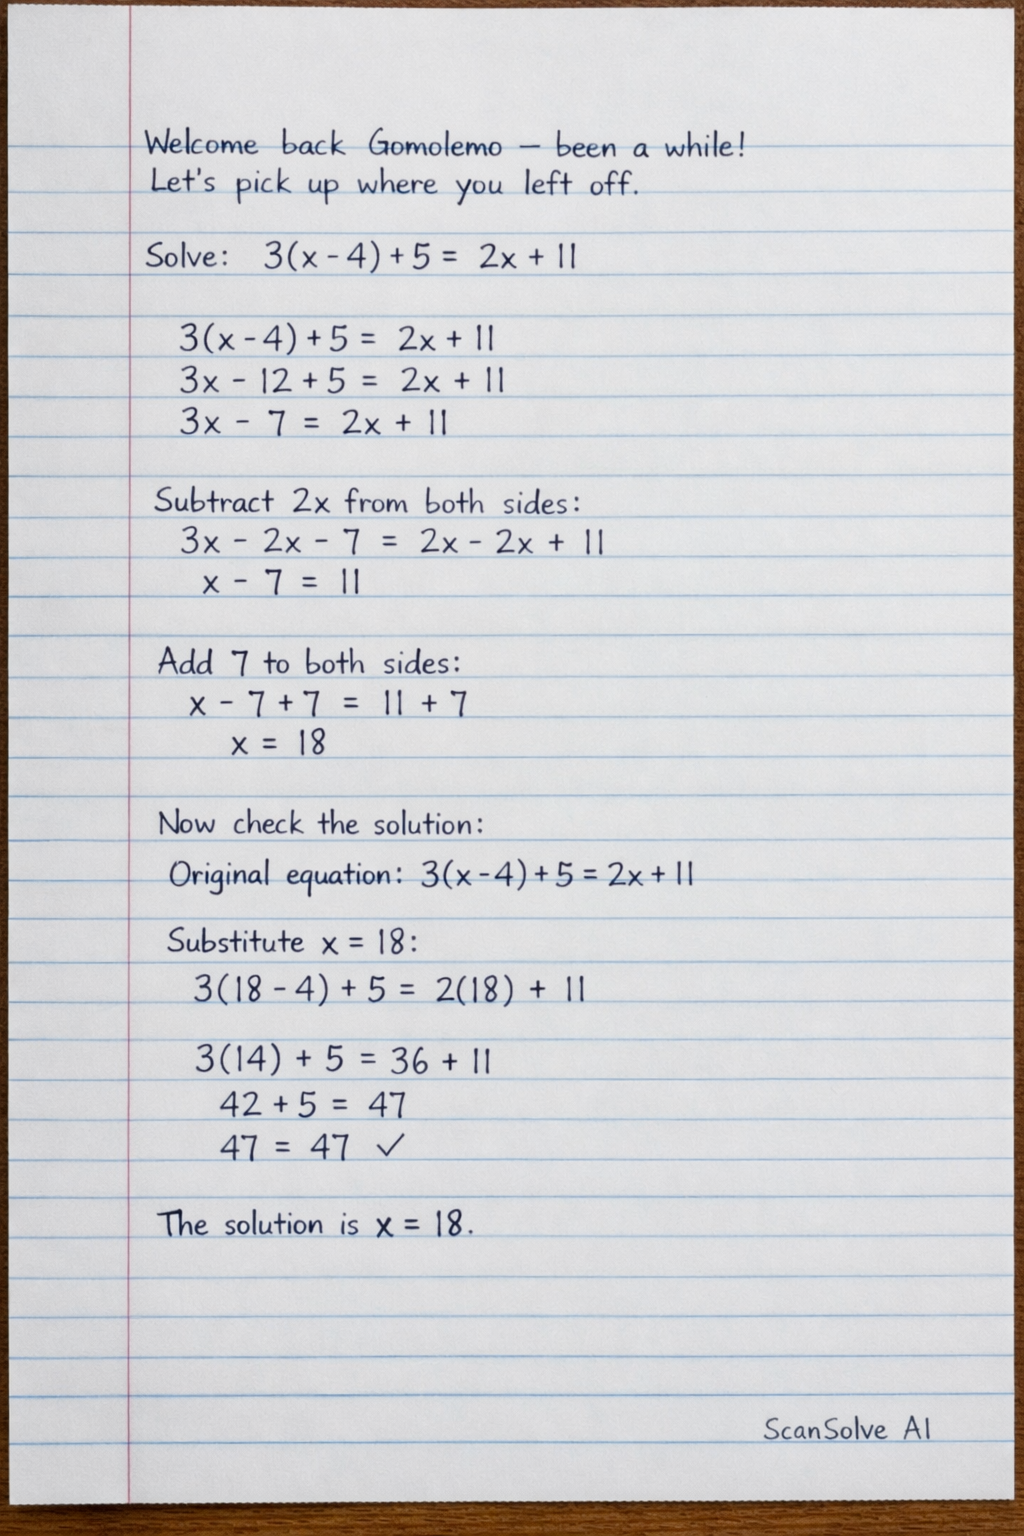 Welcome back Gomolemo – been a while!
Let's pick up where you left off.
Solve: 3(x - 4) + 5 = 2x + 11
3(x - 4) + 5 = 2x + 11
3x - 12 + 5 = 2x + 11
3x - 7 = 2x + 11
Subtract 2x from both sides:
3x - 2x - 7 = 2x - 2x + 11
x - 7 = 11
Add 7 to both sides:
x - 7 + 7 = 11 + 7
x = 18
Now check the solution:
Original equation: 3(x - 4) + 5 = 2x + 11
Substitute x = 18:
3(18 - 4) + 5 = 2(18) + 11
3(14) + 5 = 36 + 11
42 + 5 = 47
47 = 47 ✓
The solution is x = 18.
ScanSolve AI